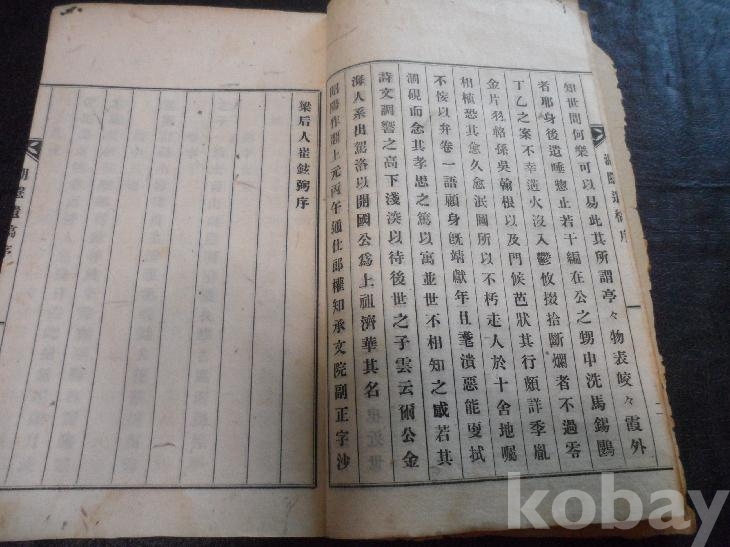 知世間何樂可以易此其所謂亭々物表皎々霞外
者耶身後遺唾惣止若干編在公之甥申洗馬錫
丁乙之案不幸遘火沒入鬱攸掇拾斷爛者不過零
金片羽輅孫吳翰根以及門候芭狀其行頗詳季胤
相植恐其愈久愈泯圖所以不朽走人於十舍地囑
不侫以弁卷一語顧身旣靖獻年且耄潰惡能更拭
凅硯而念其孝思之篤以寓並世不相知之感若其
詩文調響之高下淺深以待後世之子雲云爾公金
海人系出駕洛以開國公爲上祖濟華其名
昭陽作噩上元丙午通仕郎權知承文院副正字沙
梁后人崔鉉弼序
遺稿序
遺稿序
kobay